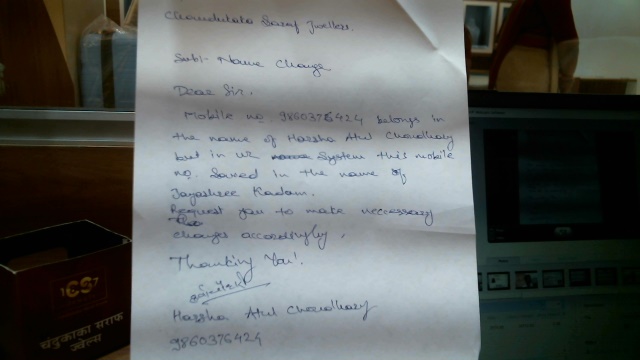 Chandukaka Saraf Jwellers.
Sub:- Name Change
Dear Sir.
Mobile no. 9860376424 belongs in
the name of Harsha Atul Choudhary
but in ur system this mobile
no. Saved in the name of
Jayashree Kadam.
Request you to make neccessary
changes accordingly.
Thanking You!
Harsha Atul Choudhary
9860376424
1CS7
चंदुकाका सराफ
ज्वेल्स